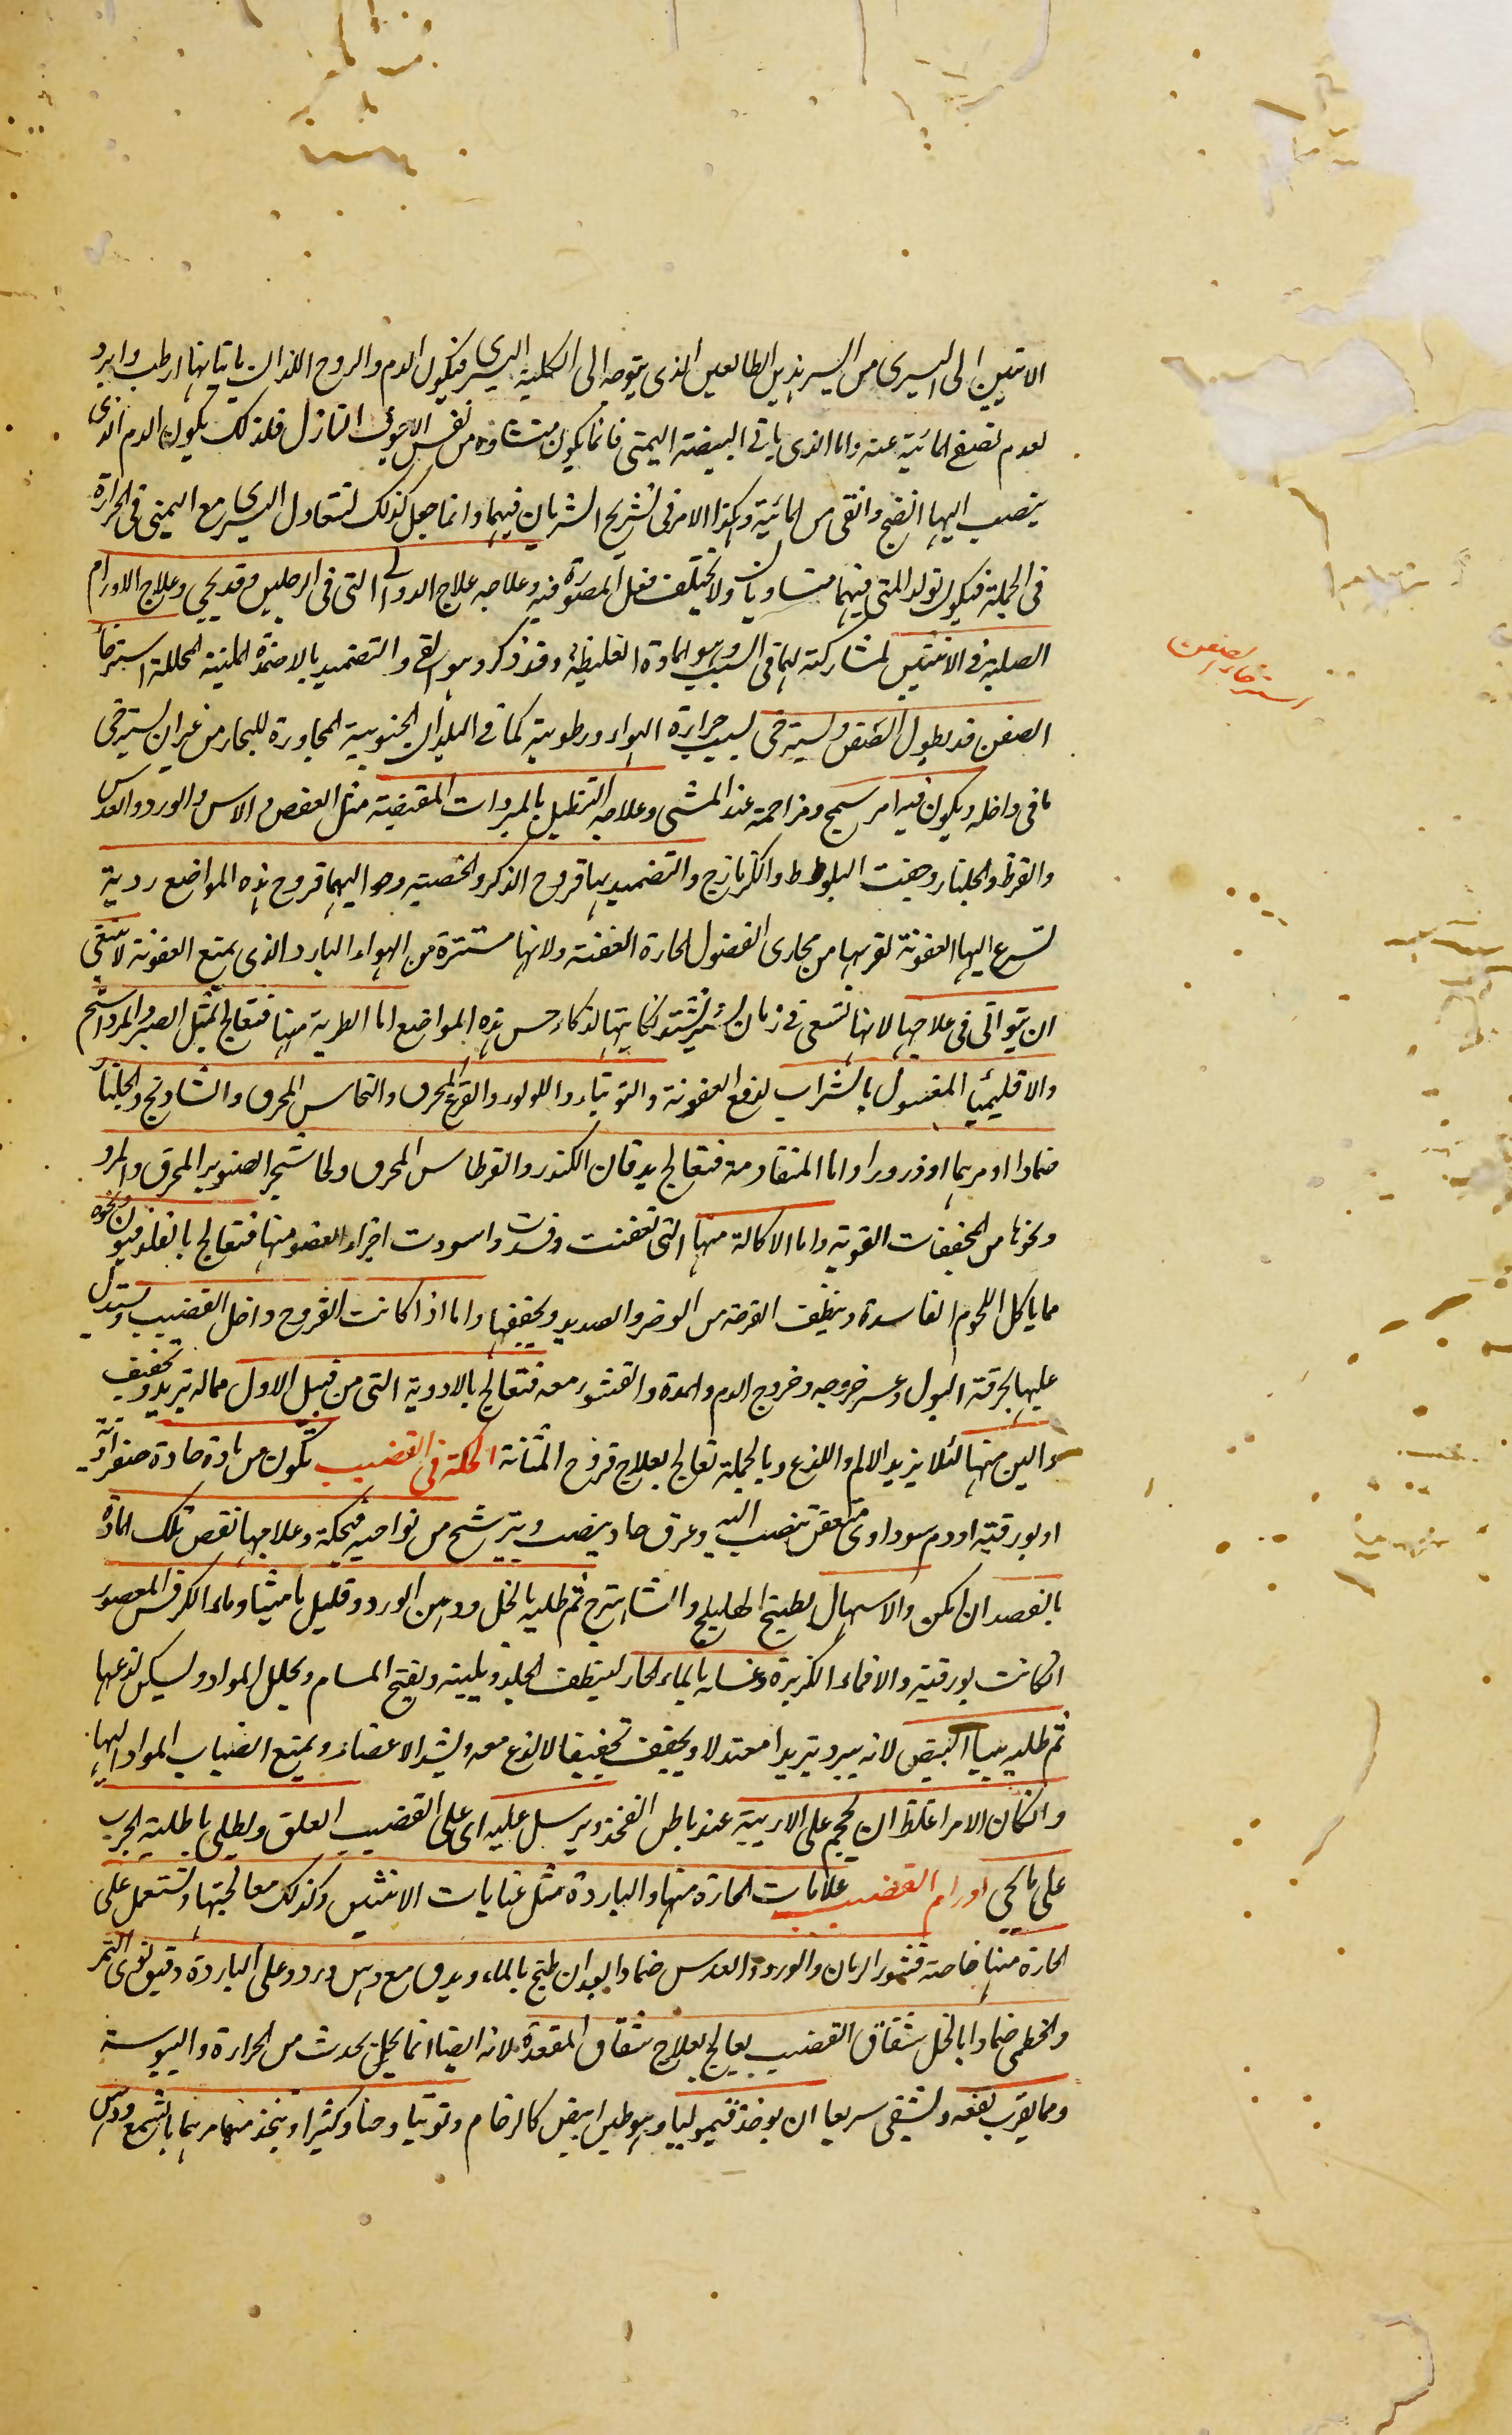 الانثيين الى اليسرى من الشريانين الطالعين الذى يتوجه الى الكلية اليسرى فيكون الدم والروح اللذان ياتيانها ارطب وابرد
لعدم تصفى المائية عنه واما الذى ياتى البيضة اليمنى فانما يكون منشاؤه من نفس الاجوف النازل فلذلك يكون الدم الذى
ينصب اليها انضج وانقى من المائية وهكذا الامر فى تشريح الشريان فيهما وانما جعل كذلك لتتعادل اليسرى مع اليمنى فى الحرارة
فى الجملة فيكون تولد المنى فيهما متساويان ولا يختلف فعل المصورة فيه وعلاجه علاج الدوالى التى فى الرجلين وقد يجيى وعلاج الاورام
الصلبة فى الانثيين لمشاركته لهما فى السبب وهو المادة الغليظة وقد ذكر وهو القى والتضميد بالاضمدة الملينة المحللة استرخأ
استرخاء الصفن
الصفن قد يطول الصفن ويسترخى لسبب حرارة الهواء ورطوبته كما فى البلدان الجنوبية المجاورة للبحار من غير ان يسترخى
ما فى داخله ويكون فيه امر سمج ومزاحمة عند المشى وعلاجه التنطيل بالمبردات المقبضة مثل العفص والاس والورد والعدس
والقرظ والجلنار وجفت البلوط والكزمازج والتضميد بها قروح الذكر والخصيه وحواليهما قروح هذه المواضع ردية
تسرع اليها العفونة لقربها من مجارى الفضول الحارة العفنة ولانها مستترة من الهواء البارد الذى يمنع العفونة لا ينبغى
ان يتوانى فى علاجها لانها تسعى فى زمان يسير تشتد نكايتها لذكاء حس هذه المواضع اما الطرية منها فتعالج بمثل الصبر والمرداسنج
والاقليميا المغسول بالشراب لدفع العفونة والتوتياء واللولو والقرع المحرق والنحاس المحرق والشادنج والجلنار
ضمادا او مرهما او ذرورا واما المتقادمة فتعالج بدقاق الكندر والقرطاس المحرق ولحا شجر الصنوبر المحرق والمر
ونحوها من المجففات القوية واما الاكالة منها التى تعفنت وفسدت واسودت اجزاء العضو منها فتعالج بالفلدفيون ونحوه
مما ياكل اللحوم الفاسدة وينظف القرحة من الوضر والصديد ويجففها واما اذا كانت القروح داخل القضيب ويستدل
عليها بحرقة البول وعسر خروجه وخروج الدم والمدة والقشور معه فتعالج بالادوية التى من قبيل الاول مما له تبريد وتجفيف
والين منها لئلا يزيد الالم واللذع وبالجملة تعالج بعلاج قروح المثانة الحكة فى القضيب تكون من مادة حادة صفراوية
او بورقية او دم سوداوى متعفن ينصب اليه وعرق حاد ينصب ويترشح من نواحيه فيحكه وعلاجها نقص تلك المادة
بالفصد ان امكن والاسهال بطبيخ الهليلج والشاهترج ثم طليه بالخل ودهن الورد وقليل ماميثا وماء الكرفس المعصور
ان كانت بورقية والا فماء الكزبرة وغسله بالماء الحار لينظف الجلد ويلينه ويفتح المسام ويحلل المواد ويسكن لذعها
ثم طليه ببياض البيض لانه يبرد تبريدا معتدلا ويجفف تجفيفا لا لذع معه ويشد الاعضاء ويمنع انصباب المواد اليها
وان كان الامر اغلظ ان يحجم على الاربية عند باطن الفخذ ويرسل عليه اى على القضيب العلق ويطلى باطلية الجرب
على ما يجى اورام القضيب علامات الحارة منها والباردة مثل علامات الانثيين وكذلك معالجتها ويستعمل على
الحارة منها خاصة قشور الرمان والورد والعدس ضمادا بعد ان طبخ بالماء ويدق مع دهن ورد وعلى الباردة دقيق نوى التمر
والخطمى ضمادا بالخل شقاق القضيب يعالج بعلاج شقاق المقعدة لانه ايضا انما يحدث من الحرارة واليبوسة
ومما يقرب نفعه ويشفى سريعا ان يوخذ قيموليا وهو طين ابيض كالرخام وتوتيا وحنا وكثيرا ويتخذ منها مرهما بالشمع ودهن